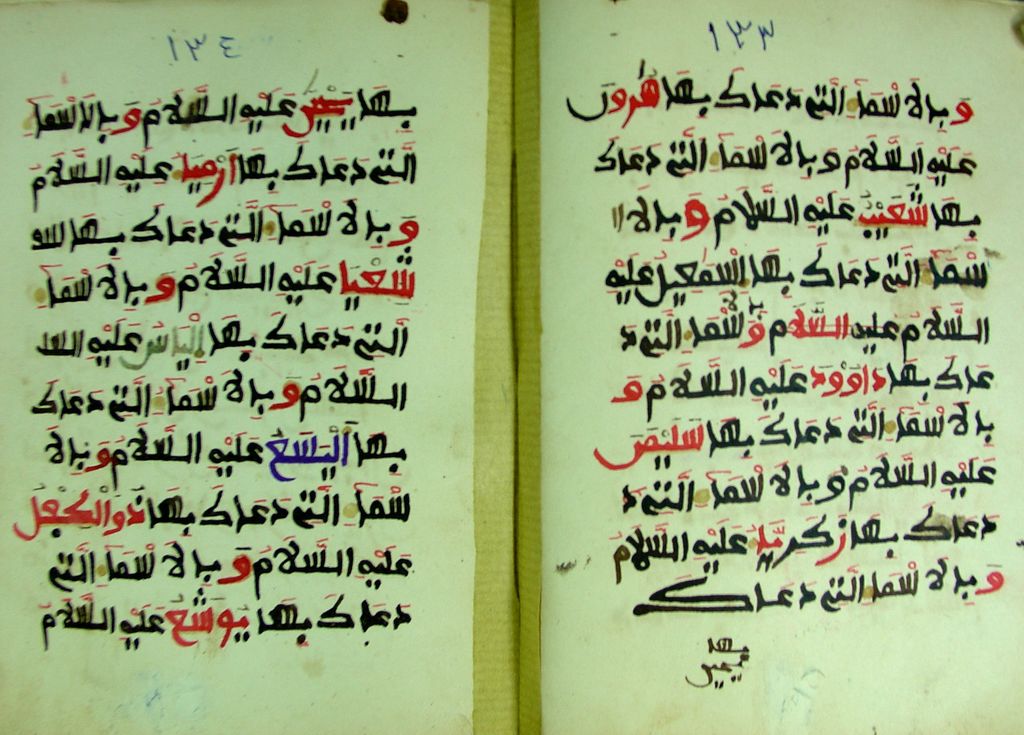 ١٣٣
وبالاسماء التي دعاك بها هرون
عليه السلام وبالاسماء التي دعاك
بها شعيب عليه السلام وبالا
سماء التي دعاك بها اسمعيل عليه
السلام عليه السلام وبالاسماء التي د
عاك بها داوود عليه السلام و
بالاسماء التي دعاك بها سليمن
عليه السلام وبالاسماء التي د
دعاك بها زكريا عليه السلام
وبالاسماء التي دعاك
بها
يحيى
١٣٤
بها يحيى عليه السلام وبالاسماء
التي دعاك بها ارميا عليه السلام
وبالاسماء التي دعاك بها
شعيا عليه السلام وبالاسماء
التي دعاك بها الياس عليه
السلام وبالاسماء التي دعاك
بها اليسع عليه السلام وبالا
سماء التي دعاك بها ذو الكفل
عليه السلام وبالاسماء التي
دعاك بها يوشع عليه السلام